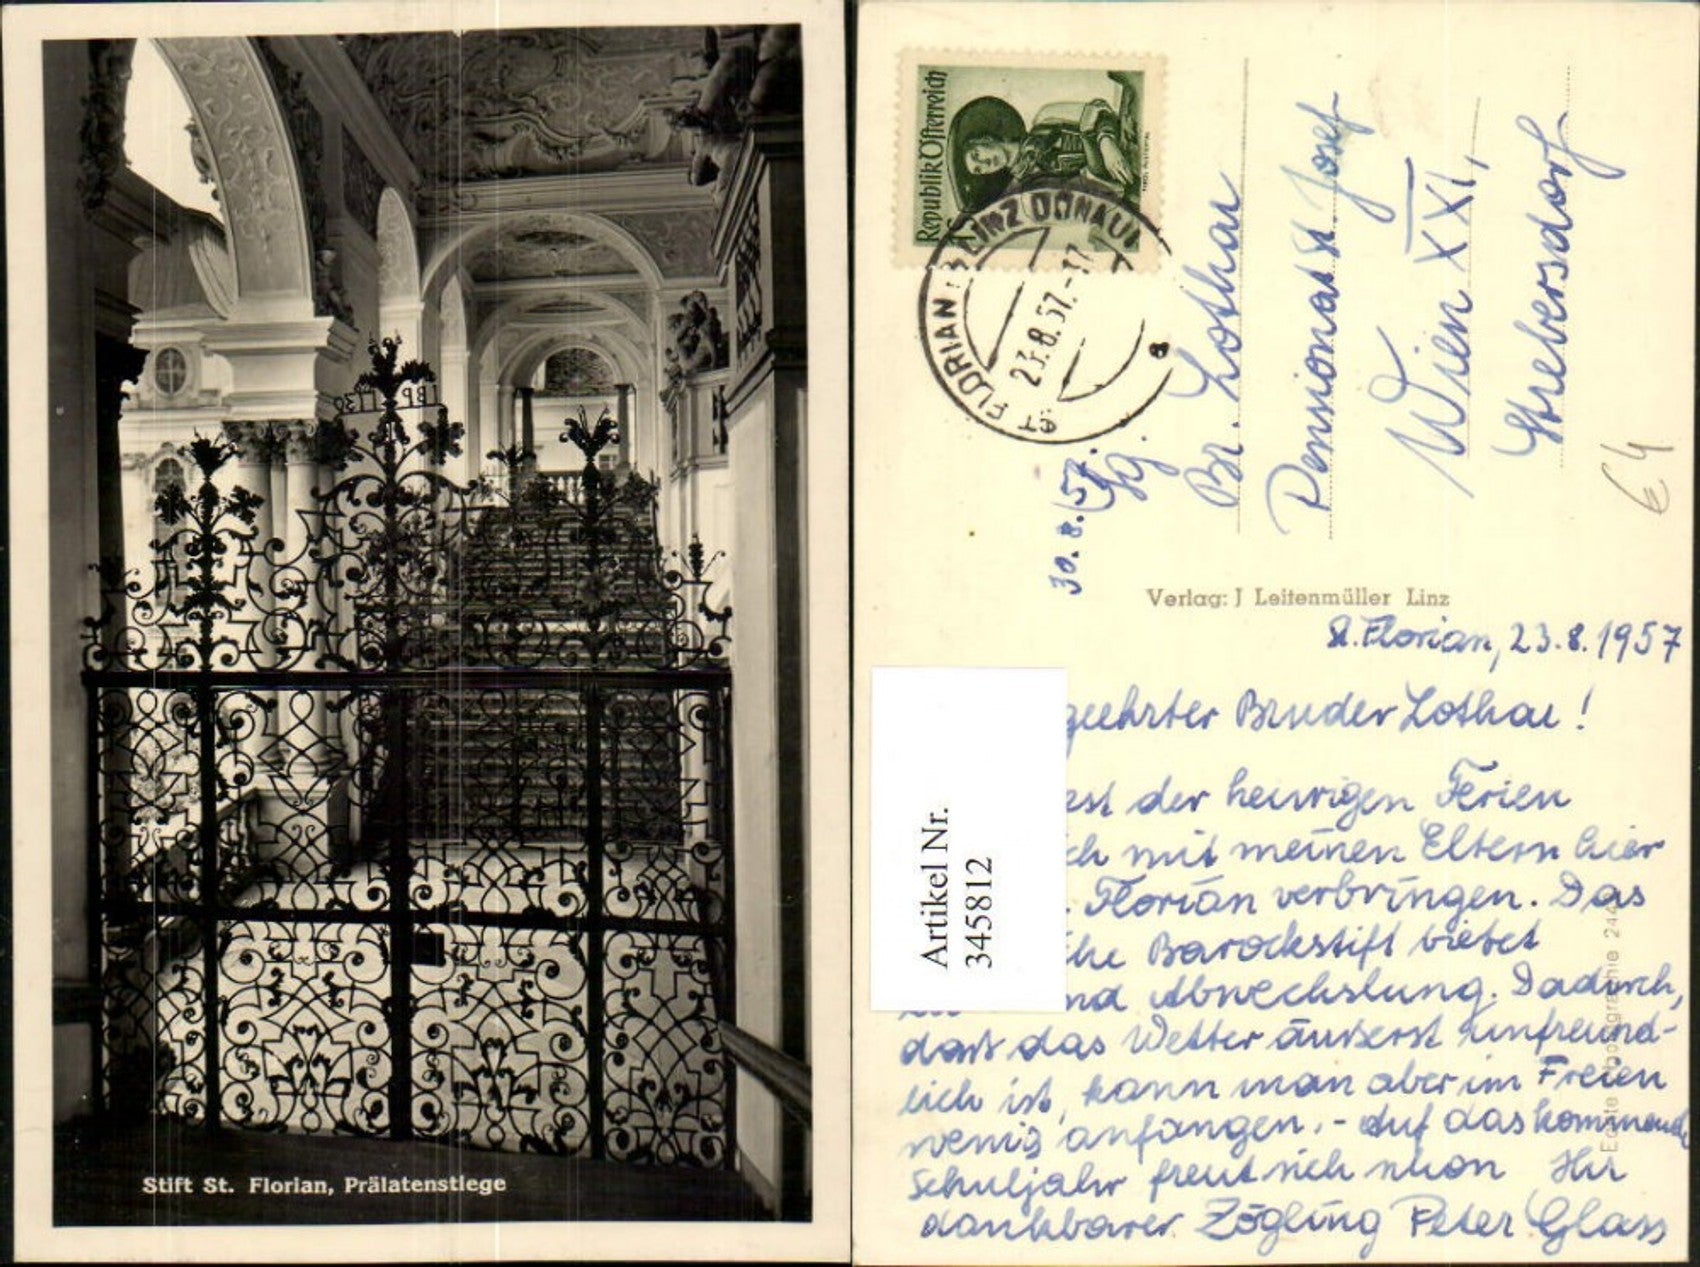 JBP 1730
Stift St. Florian, Prälatenstiege
Republik Österreich
ST FLORIAN B LINZ DONAU
23.8.57.-17
30.8.57
Sg.
Br. Lothar
Pensionat St. Josef
Wien XXI,
Strebersdorf
€4
Verlag: J Leitenmüller Linz
St. Florian, 23.8.1957
geehrter Bruder Lothar!
est der heurigen Ferien
ch mit meinen Eltern hier
. Florian verbringen. Das
che Barockstift bietet
nd Abwechslung. Dadurch,
daß das Wetter äußerst unfreund-
lich ist, kann man aber im Freien
wenig anfangen. - Auf das kommende
Schuljahr freut sich schon Ihr
dankbarer Zögling Peter Glass
Artikel Nr.
345812
Echte Photographie